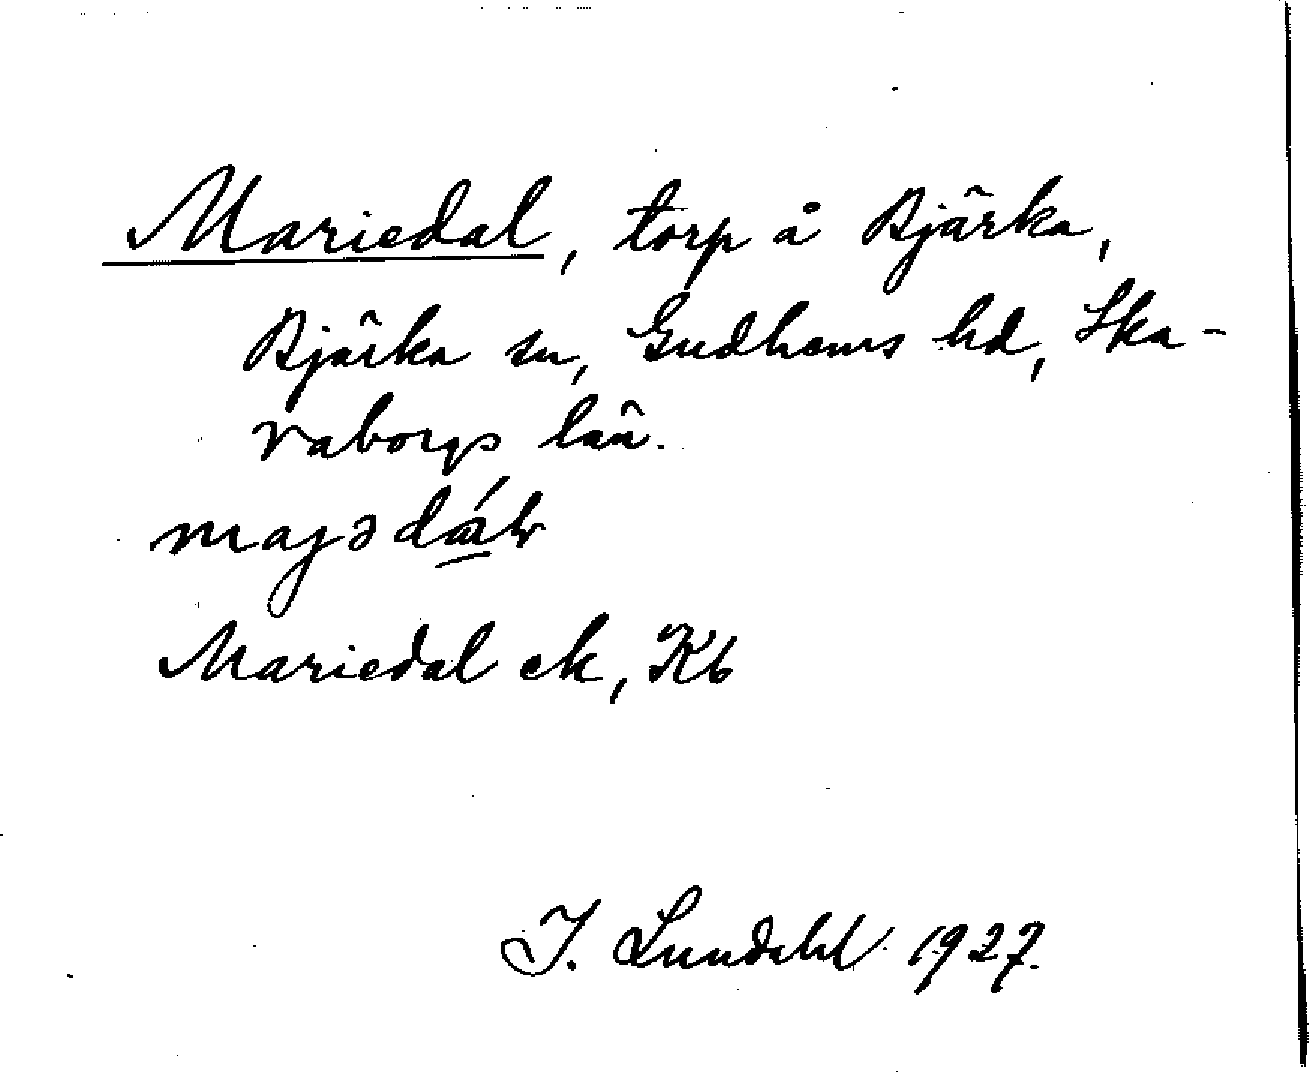 Mariedal, torp å Bjärka,
Bjärka sn, Gudhems hd, Ska-
raborgs län.
majɘdáɫ
Mariedal ek, Kb
I. Lundahl 1927.